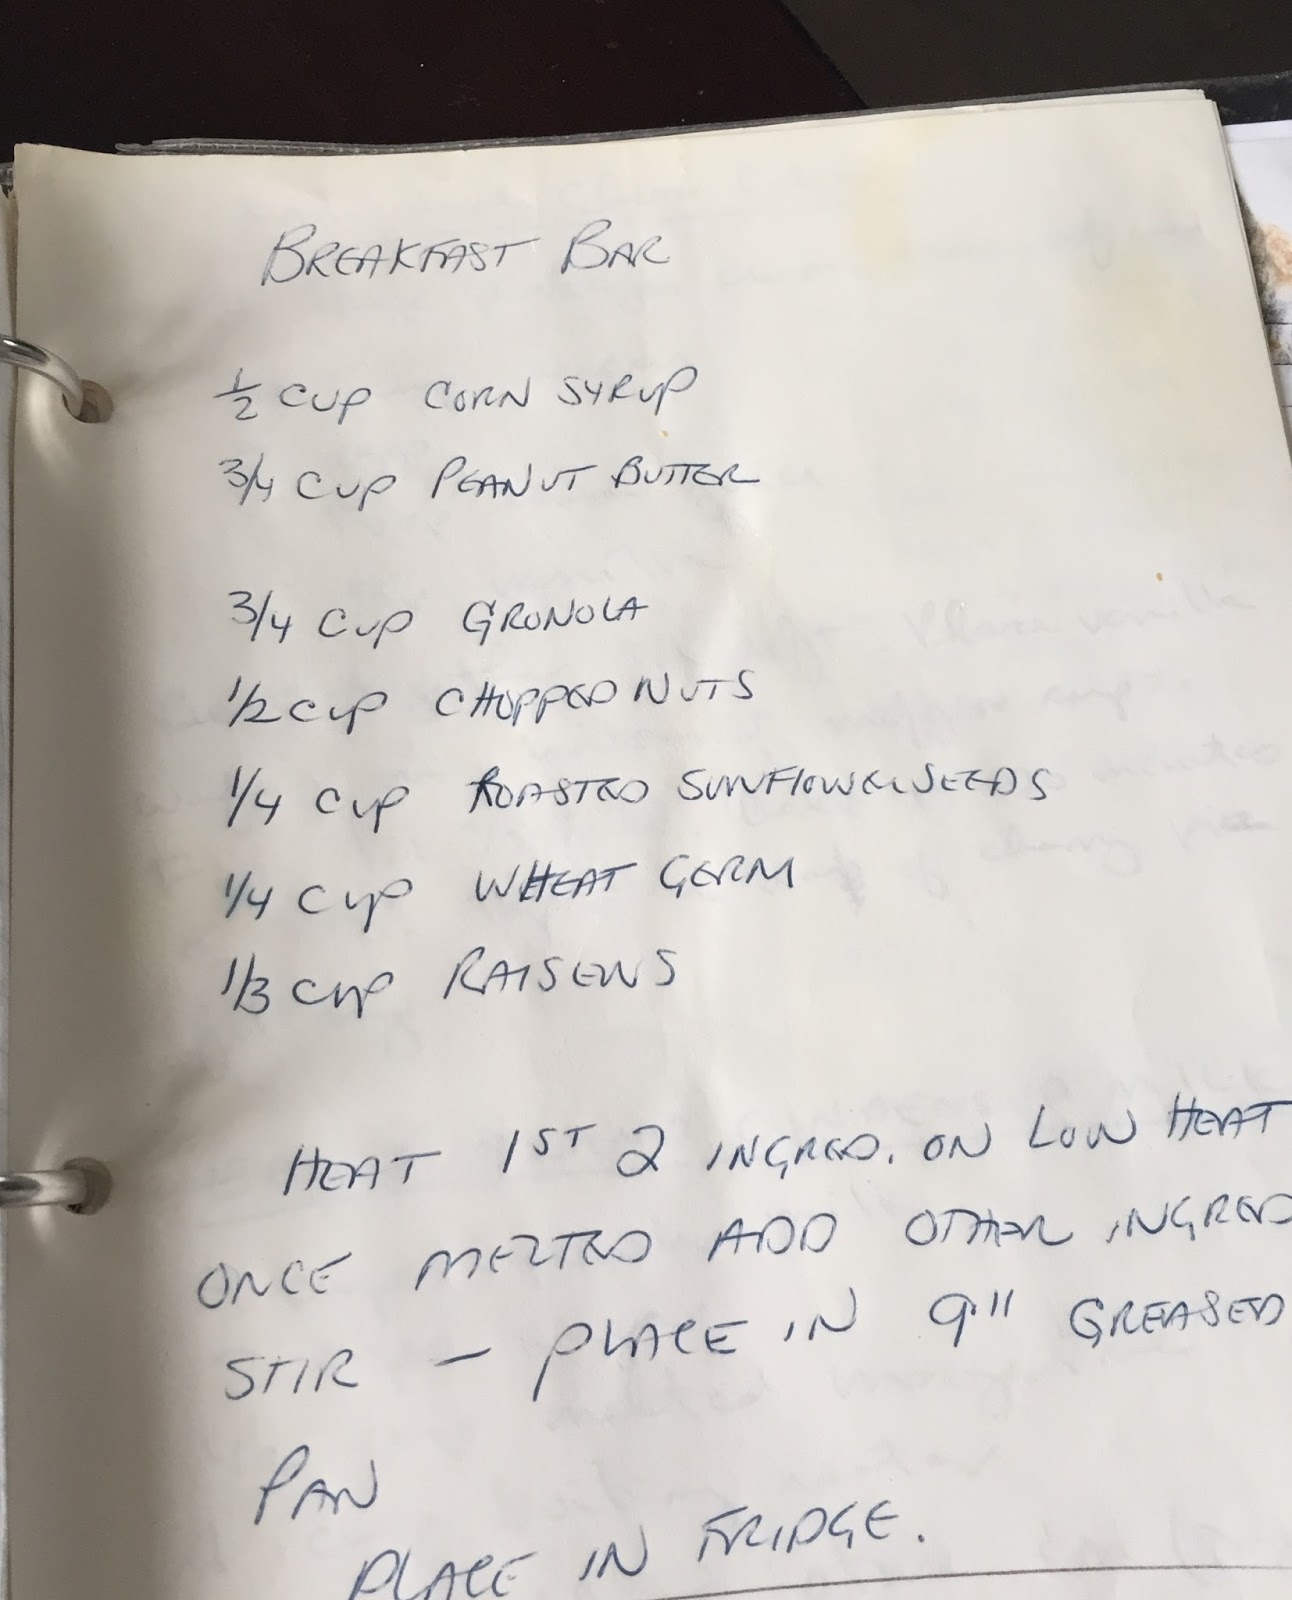 BREAKFAST BAR
1/2 CUP CORN SYRUP
3/4 CUP PEANUT BUTTER
3/4 CUP GRONOLA
1/2 CUP CHOPPED NUTS
1/4 CUP ROASTED SUNFLOWER SEEDS
1/4 CUP WHEAT GERM
1/3 CUP RAISENS
HEAT 1ST 2 INGRED. ON LOW HEAT
ONCE MELTED ADD OTHER INGRED
STIR - PLACE IN 9" GREASED
PAN
PLACE IN FRIDGE.